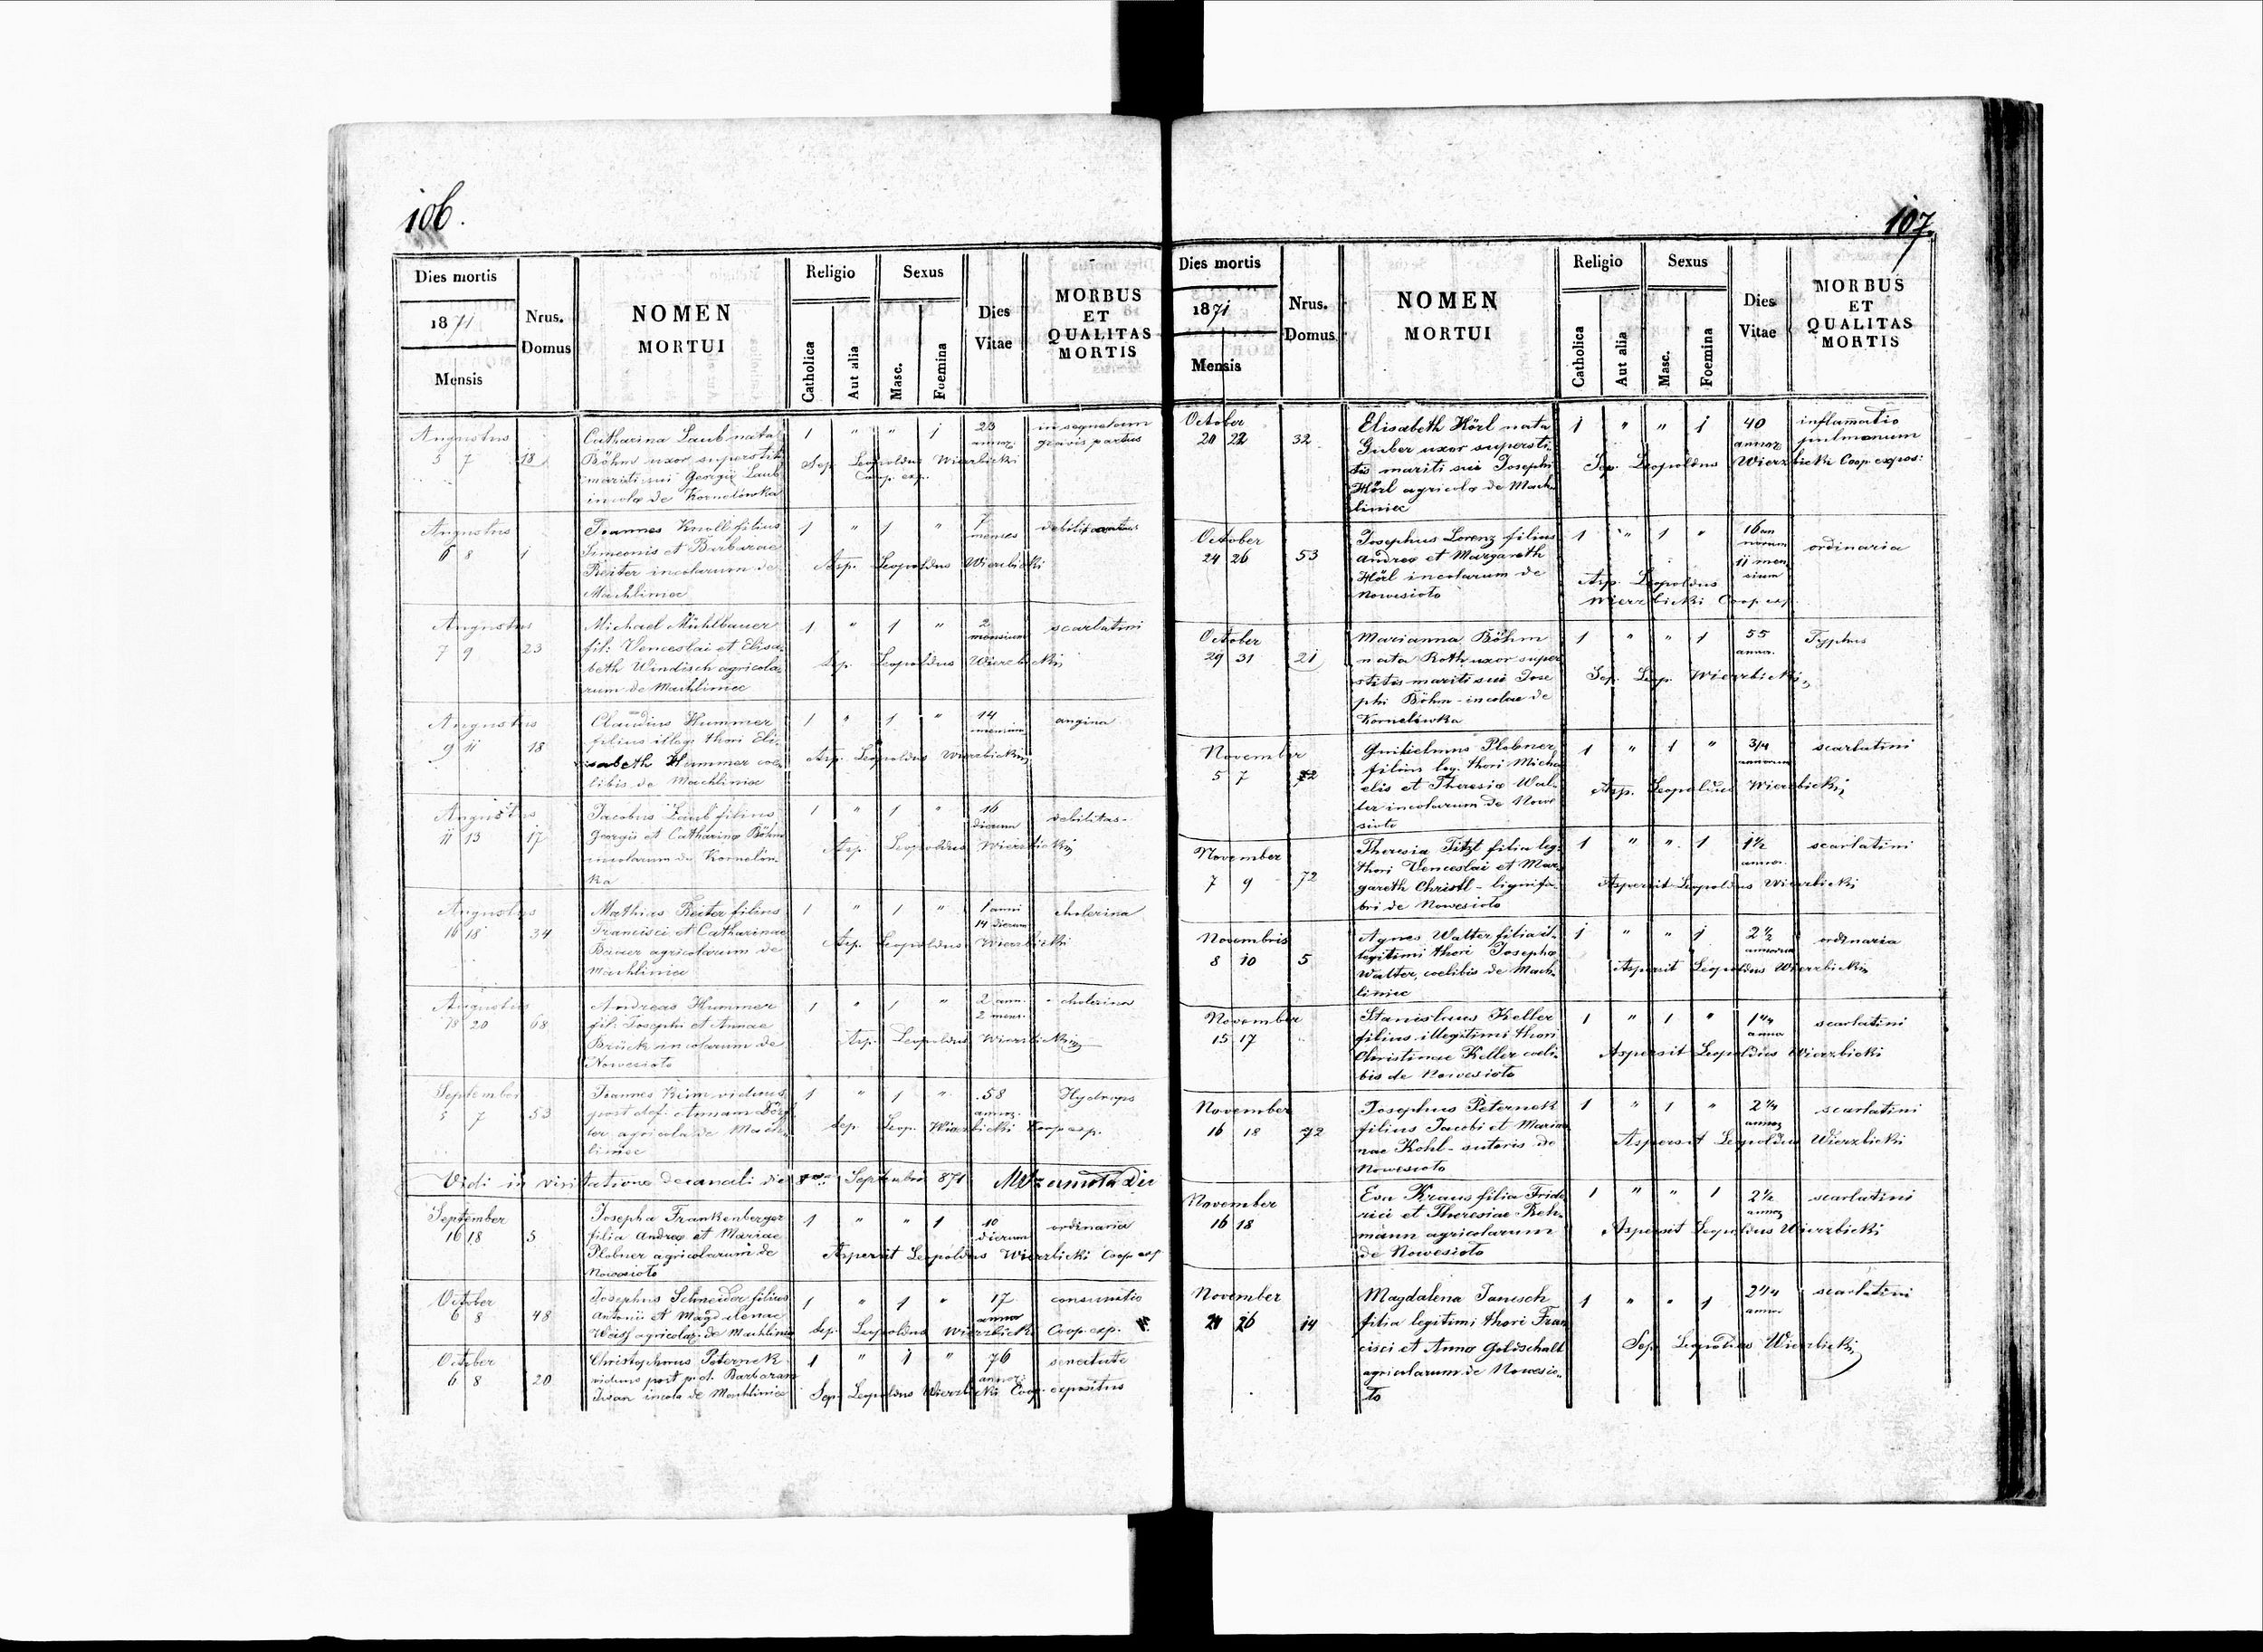 106.
Dies mortis
1871
Mensis
Nrus.
Domus
NOMEN
MORTUI
Religio
Catholica
Aut alia
Sexus
Masc.
Foemina
Dies
Vitae
MORBUS
ET
QUALITAS
MORTIS
Augustus
5 7 18
Catharina Laub nata
Böhm uxor superstit
mariti sui Georgii Laub
incolae de Kornelówka
1 " " 1
23
annor.
in sequelam
gravis partus
Sep. Leopoldus Wierzbicki
Coop. exp.
Augustus
6 8 1
Joannes Knoll filius
Simeonis et Barbarae
Reiter incolarum de
Machliniec
1 " 1 "
7
menses
Asp. Leopoldus Wierzbicki
Augustus
7 9 23
Michael Mühlbauer
fil: Venceslai et Elisa-
beth Windisch agricola-
rum de Machliniec
1 " 1 "
2
mensium
scarlatini
Sep. Leopoldus Wierzbicki
Augustus
9 11 18
Claudius Hummer
filius illeg. thori Eli-
sabeth Hummer coe-
libis de Machliniec
1 " 1 "
14
mensium
angina
Asp. Leopoldus Wierzbicki
Augustus
11 13 17
Jacobus Laub filius
Georgii et Catharinae Böhm
incolarum de Kornelów-
ka
1 " 1 "
16
dierum
debilitas-
Asp. Leopoldus Wierzbicki
Augustus
16 18 34
Mathias Reiter filius
Francisci et Catharinae
Bauer agricolarum de
Machliniec
1 " 1 "
1 anni
14 dierum
cholerina
Asp. Leopoldus Wierzbicki
Augustus
18 20 68
Andreas Hummer
fil: Josephi et Annae
Brück incolarum de
Nowesioto
1 " 1 "
2 ann.
2 mens.
cholerina
Asp. Leopoldus Wierzbicki
September
5 7 53
Joannes Keim viduus
post def. Annam Dörf
ler agricola de Mach-
liniec
1 " 1 "
58
annor.
Hydrops
Sep. Leop. Wierzbicki Coop exp.
Vidi in visitatione decanali die Septembris 871
September
16 18 5
Josepha Frankenberger
filia Andreae et Mariae
Plobner agricolarum de
Nowesioto
1 " " 1
10
dierum
ordinaria
Aspersit Leopoldus Wierzbicki Coop exp
October
6 8 48
Josephus Schneider filius
Antonii et Magdalenae
Weiss agricolar. de Machliniec
1 " 1 "
17
annor
consumtio
Sep. Leopoldus Wierzbicki Coop. exp.
October
6 8 20
Christophorus Peternek
viduus post p. d. Barbaram
Iwan incola de Machliniec
1 " 1 "
76
annor.
senectute
Sep. Leopoldus Wierzbicki Coop. expositus
107.
Dies mortis
1871
Mensis
Nrus.
Domus
NOMEN
MORTUI
Religio
Catholica
Aut alia
Sexus
Masc.
Foemina
Dies
Vitae
MORBUS
ET
QUALITAS
MORTIS
October
20 22 32
Elisabeth Hörl nata
Guber uxor supersti-
tis mariti sui Josephi
Hörl agricolae de Mach-
liniec
1 " " 1
40
annor
inflammatio
pulmonum
Sep. Leopoldus Wierzbicki Coop. expos:
October
24 26 53
Josephus Lorenz filius
Andreae et Margareth
Hörl incolarum de
Nowesioto
1 " 1 "
16 an
norum
11 men
sium
ordinaria
Asp. Leopoldus
Wierzbicki Coop. exp
October
29 31 21
Marianna Böhm
nata Roth uxor super
stitis mariti sui Jose
phi Böhm - incolae de
Kornelówka
1 " " 1
55
annor.
Typhus
Sep. Leop. Wierzbicki
November
5 7 72
Guilielmus Plobner
filius leg. thori Micha
elis et Theresiae Wal-
ter incolarum de Nowe
sioto
1 " 1 "
3/4
annorum
scarlatini
Asp. Leopoldus Wierzbicki
November
7 9 72
Theresia Titzl filia leg.
thori Venceslai et Mar-
gareth Christl - lignifa-
bri de Nowesioto
1 " " 1
1 1/2
annor.
scarlatini
Aspersit Leopoldus Wierzbicki
Novembris
8 10 5
Agnes Walter filia il-
legitimi thori Josephae
Walter, coelibis de Mach-
liniec
1 " " 1
2 1/2
annorum
ordinaria
Aspersit Leopoldus Wierzbicki
November
15 17
Stanislaus Keller
filius illegitimi thori
Christinae Keller coeli-
bis de Nowesioto
1 " 1 "
1 1/4
annor
scarlatini
Aspersit Leopoldus Wierzbicki
November
16 18 72
Josephus Peternek
filius Jacobi et Marian
nae Kohl - sutoris de
Nowesioto
1 " 1 "
2 1/4
annor
scarlatini
Aspersit Leopoldus Wierzbicki
November
16 18
Eva Kraus filia Fride
rici et Theresiae Reh-
mann agricolarum
de Nowesioto
1 " " 1
2 1/2
annor
scarlatini
Aspersit Leopoldus Wierzbicki
November
26 14
Magdalena Janisch
filia legitimi thori Fran
cisci et Annae Goldschalt
agricolarum de Nowesio-
to
1 " " 1
2 1/4
annor
scarlatini
Sep. Leopoldus Wierzbicki